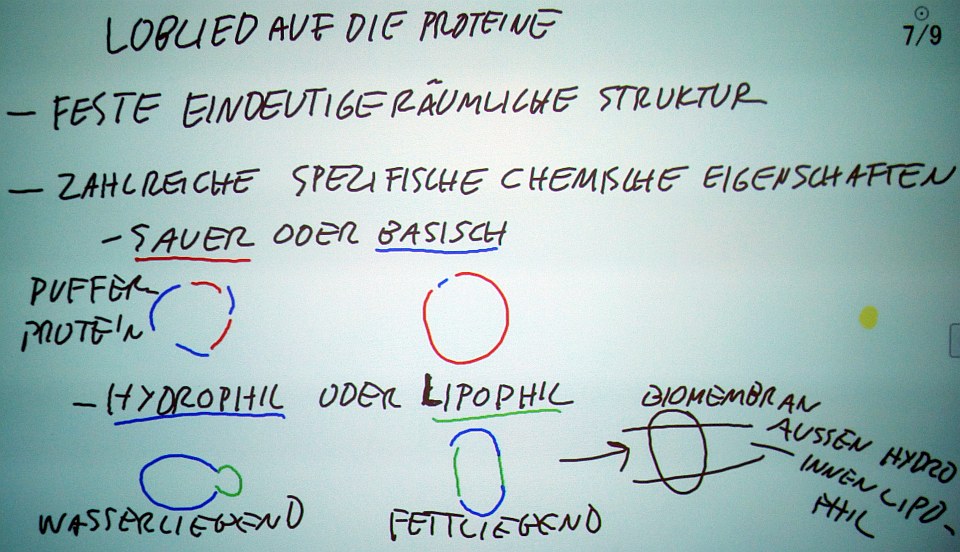 LOBLIED AUF DIE PROTEINE
7/9
— FESTE EINDEUTIGE RÄUMLICHE STRUKTUR
— ZAHLREICHE SPEZIFISCHE CHEMISCHE EIGENSCHAFTEN
– SAUER ODER BASISCH
PUFFER-
PROTEIN
– HYDROPHIL ODER LIPOPHIL
BIOMEMBRAN
AUSSEN HYDRO
INNEN LIPO-
PHIL
WASSERLIEGEND
FETTLIEGEND